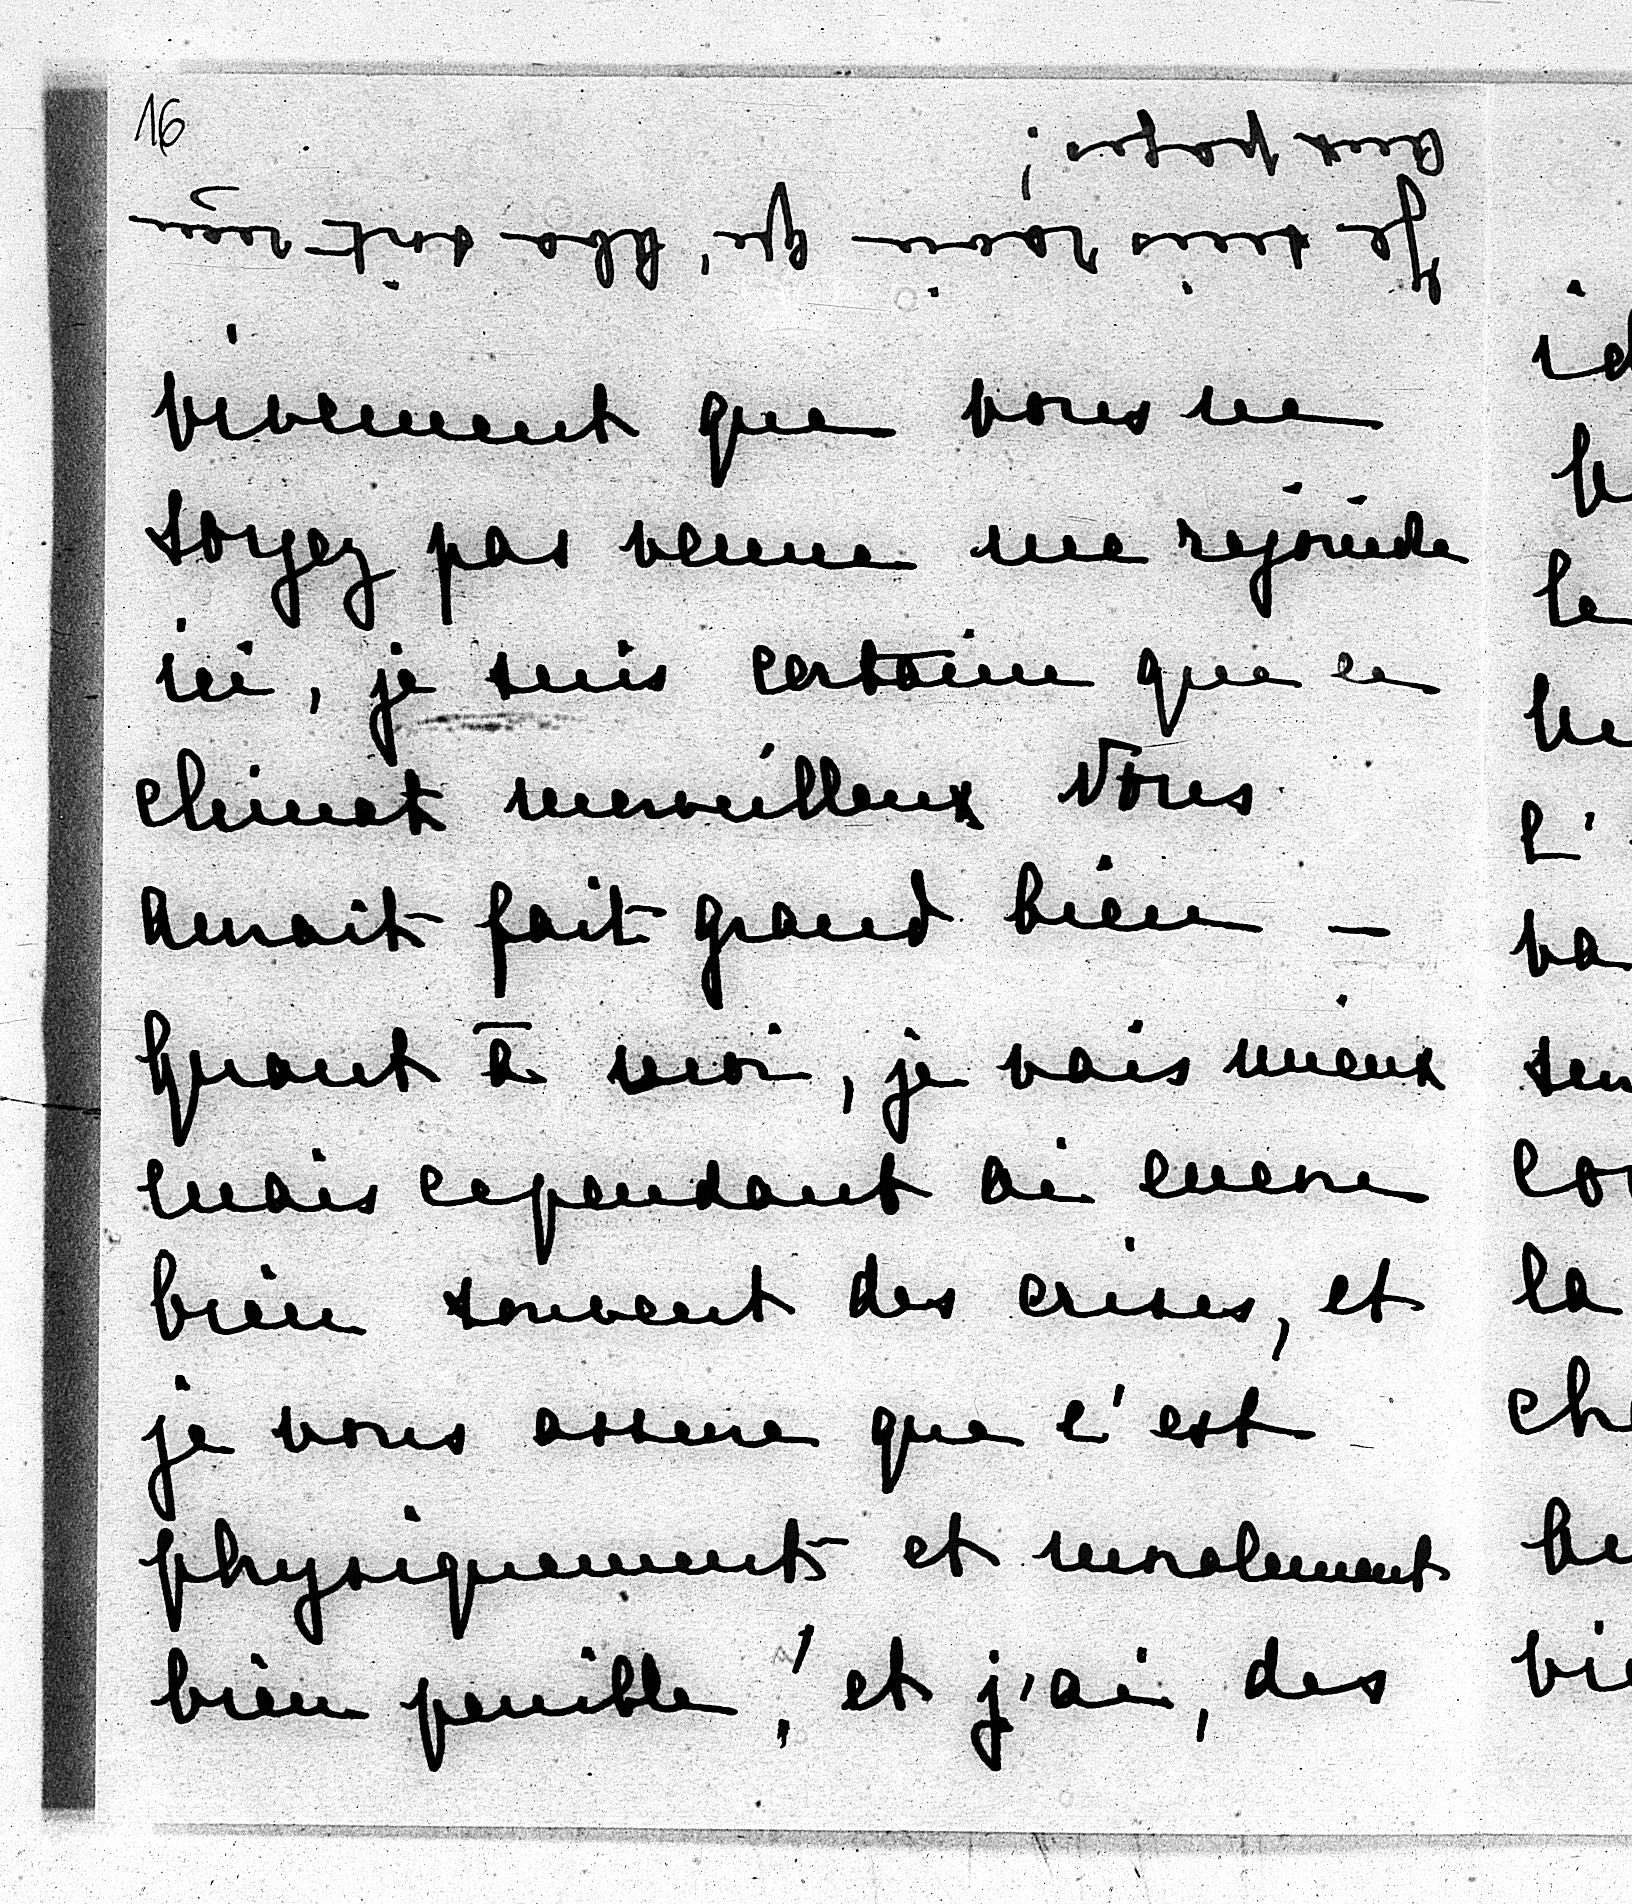 16
vivement que vous ne
soyez pas venue me rejoindre
ici, je suis certaine que ce
climat merveilleux Vous
aurait fait grand bien —
Quant à moi, je vais mieux
mais cependant ai encore
bien souvent des crises, et
je vous assure que c'est
physiquement et moralement
bien penible,! et j'ai, des